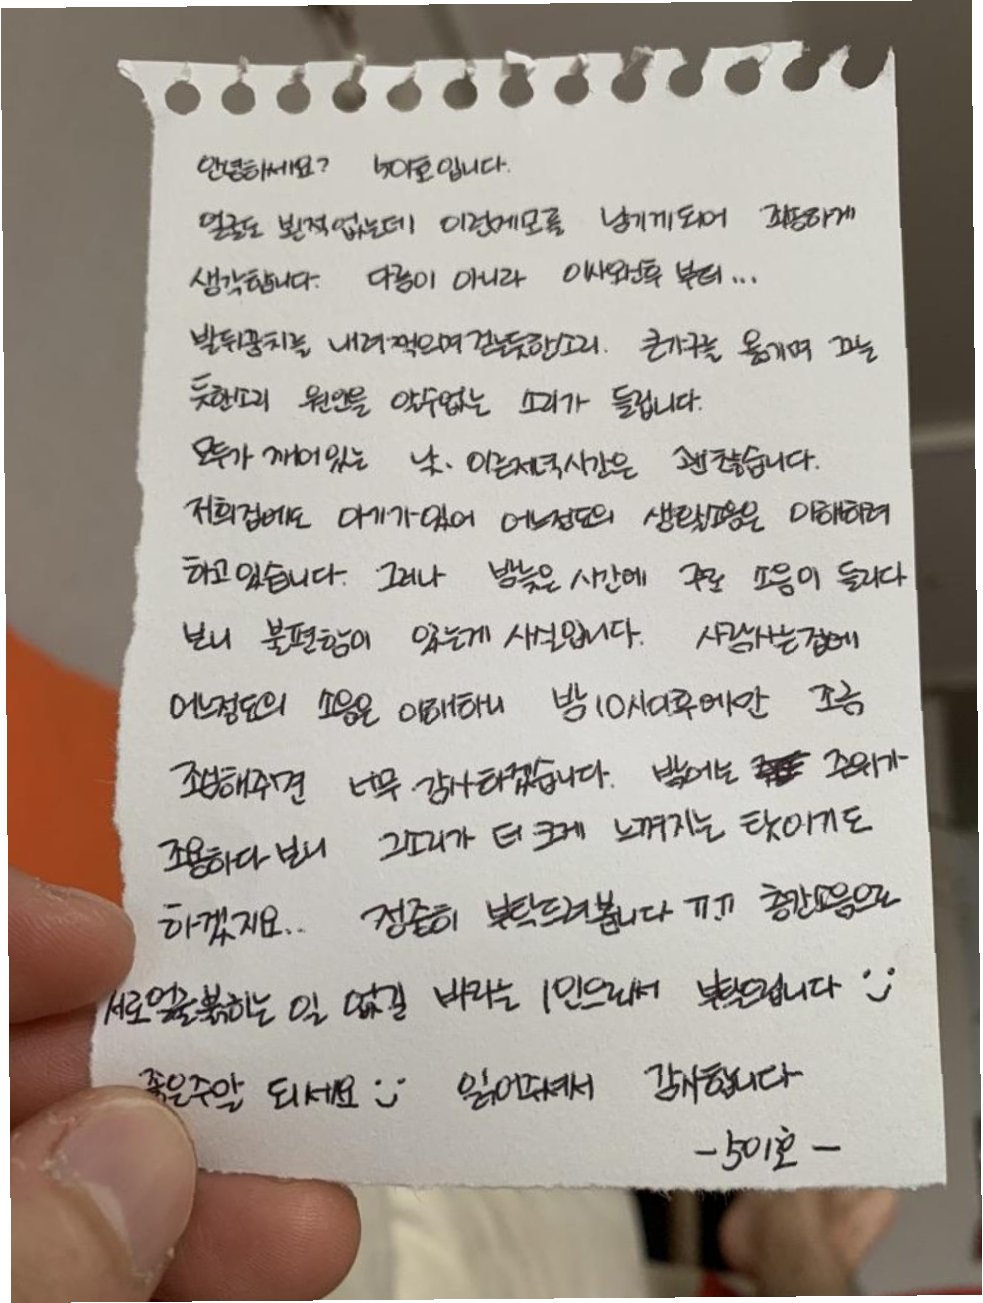 안녕하세요? 501호입니다.
얼굴도 본적없는데 이런메모를 남기게되어 죄송하게
생각합니다. 다름이 아니라 이사오신후 부터...
발뒤꿈치를 내려찍으며걷는듯한소리. 큰가구를 옮기며 끄는
듯한소리 원인을 알수없는 소리가 들립니다.
모두가 깨어있는 낮. 이른저녁시간은 괜찮습니다.
저희집에도 아기가있어 어느정도의 생활소음은 이해하려
하고있습니다. 그러나 밤늦은시간에 주로 소음이 들리다
보니 불편함이 있는게 사실입니다. 사람사는집에
어느정도의 소음은 이해하니 밤10시이후에만 조금
조심해주면 너무 감사하겠습니다. 밤에는 주위가
조용하다보니 그소리가 더 크게 느껴지는 탓이기도
하겠지요.. 정중히 부탁드려봅니다 ㅠㅠ 층간소음으로
서로얼굴붉히는 일 없길 바라는 1인으로서 부탁드립니다 :)
좋은주말 되세요 :) 읽어주셔서 감사합니다
-501호-